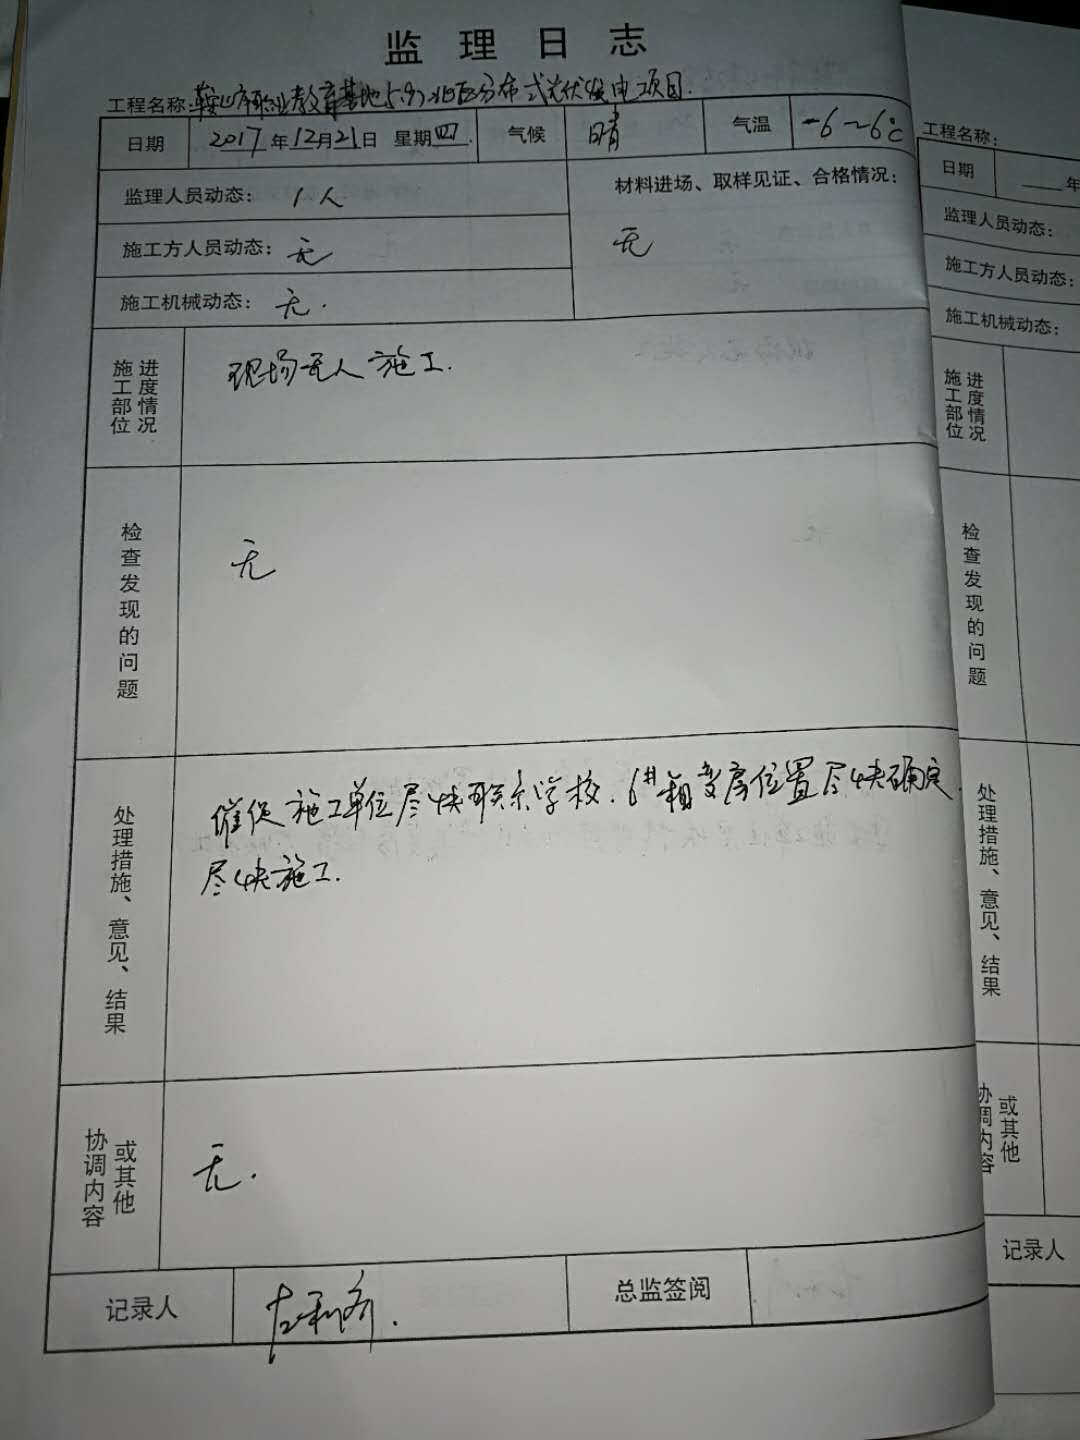 监理日志
工程名称:鞍山市职业教育基地5.9兆瓦分布式光伏发电项目.
日期 2017年12月21日 星期四. 气候 晴 气温 -6~6℃
监理人员动态: 1人
材料进场、取样见证、合格情况:
施工方人员动态: 无
无
施工机械动态: 无.
施工部位进度情况
现场无人施工.
检查发现的问题
无
处理措施、意见、结果
催促施工单位尽快联系学校.6#箱变房位置尽快确定.
尽快施工.
协调内容或其他
无.
记录人
总监签阅
工程名称:
日期 年
监理人员动态:
施工方人员动态:
施工机械动态:
施工部位进度情况
检查发现的问题
处理措施、意见、结果
协调内容或其他
记录人